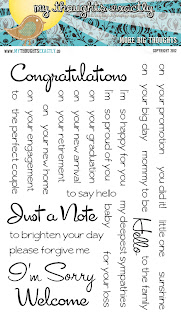 my thoughts exactly
www.mythoughtsexactly.us
copyright 2012
Congratulations
to the perfect couple
on your engagement
on your new home
on your retirement
on your new arrival
on your graduation
i'm so proud of you
i'm so happy for you
on your big day
on your promotion
you did it!
little one
to say hello
Just a Note
to brighten your day
please forgive me
I'm Sorry
Welcome
baby
for your loss
my deepest sympathies
mommy to be
Hello
to the family
sunshine